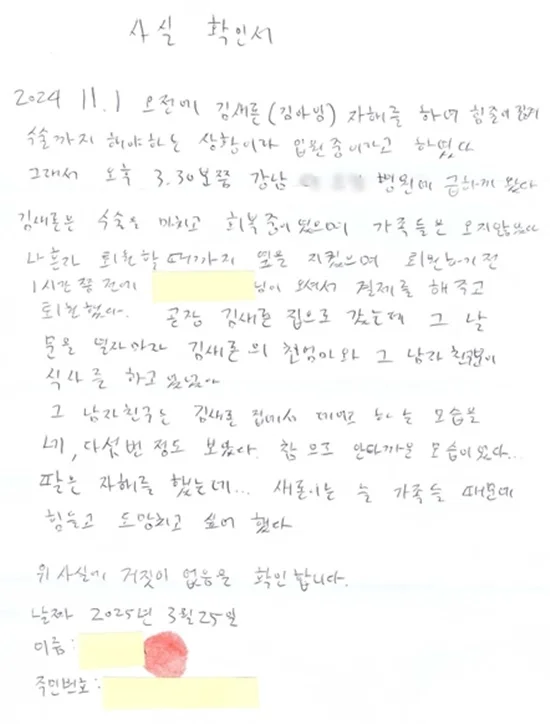 사실 확인서
2024 11.1 오전에 김새론(김아임) 자해를 하여 힘줄이 끊겨
수술까지 해야하는 상황이라 입원중이라고 하였다
그래서 오후 3.30분쯤 강남 병원에 급하게 갔다
김새론은 수술을 마치고 회복중이었으며 가족들은 오지않았다
나혼자 퇴원할때까지 옆을 지켰으며 퇴원하기전
1시간쯤 전에 님이 오셔서 결제를 해주고
퇴원했다. 곧장 김새론 집으로 갔는데 그 날
문을 열자마자 김새론의 친엄마와 그 남자친구분이
식사를 하고 있었다
그 남자친구는 김새론 집에서 하는 모습을
네, 다섯번 정도 보았다. 참으로 안타까운 모습이었다...
딸은 자해를 했는데... 새론이는 늘 가족들 때문에
힘들고 도망치고 싶어 했다
위 사실에 거짓이 없음을 확인합니다.
날짜 2025년 3월 25일
이름:
주민번호: